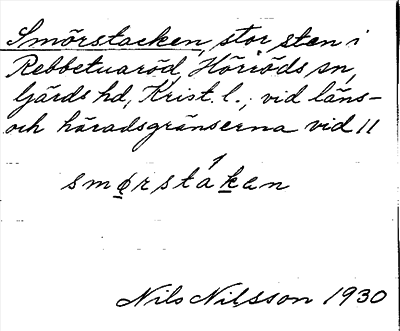 Smörstacken, stor sten i
Rebbetuaröd, Hörröds sn,
Gärds hd, Krist. l.; vid läns-
och häradsgränserna vid 11
smørstaken
Nils Nilsson 1930